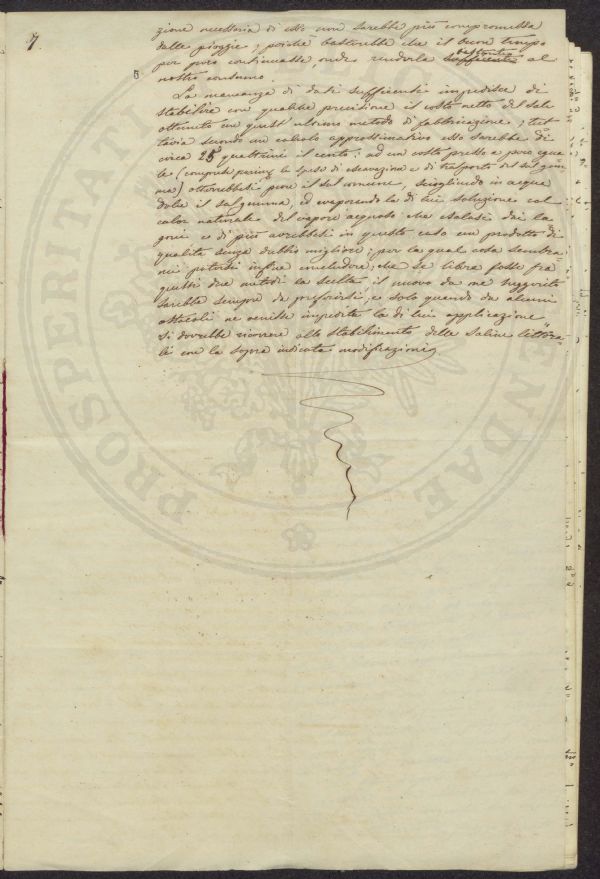 7.
zione necessaria di esso non sarebbe più compromessa
dalle pioggie, poichè basterebbe che il buon tempo
per poco continuasse, onde renderla sufficiente bastante al
nostro consumo.
La mancanza di dati sufficienti impedisce di
stabilire con qualche precisione il costo netto del sale
ottenuto con quest'ultimo metodo di fabbricazione; tut
tavia secondo un calcolo approssimativo esso sarebbe di
circa 25 quattrini il cento: ad un costo presso a poco egua
le (comprese le spese di escavazione e di trasporto del sal gem
ma) otterrebbesi pure il sal comune, sciogliendo in acqua
dolce il sal gemma, ed evaporando la di lui soluzione col
calor naturale del vapore acquoso che esalasi dai la
goni e di più avrebbesi in questo caso un prodotto di
qualità senza dubbio migliore; per la qual cosa sembra
mi potersi infine concludere, che se libera fosse fra
questi due metodi la scelta il nuovo da me suggerito
sarebbe sempre da preferirsi, e solo quando da alcuni
ostacoli ne venisse impedita la di lui applicazione
si dovrebbe ricorrere allo stabilimento delle Saline littora
li con la sopra indicata modificazione
PROSPERITATI
ENDAE